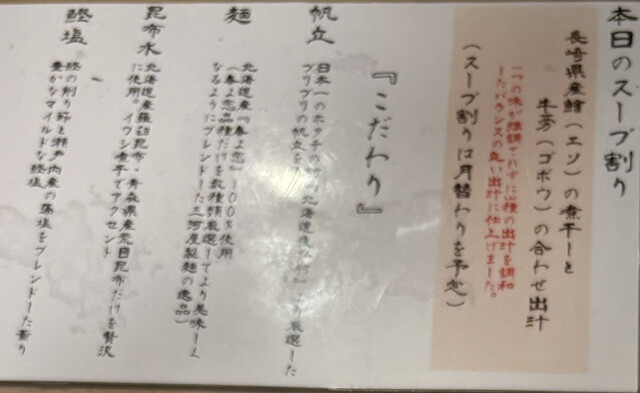 本日のスープ割り
長崎県産鱠（エソ）の煮干しと
牛蒡（ゴボウ）の合わせ出汁
一つの味が強調でれずに品種の出汁を調和
したバランスの良い出汁に仕上げました。
（スープ割りは月替わりを予定）
『こだわり』
帆立
日本一のホタテの
北海道
より厳選した
プリプリの帆立を
麺
北海道産『春よ恋』100％使用
（春よ恋品種だけを数種類厳選してより美味しく
なるようにブレンドした三河屋製麺の逸品）
昆布水
北海道産羅臼昆布・青森県産荒目昆布だけを贅沢
に使用。イワシ煮干でアクセント
鰹塩
鰹の削り節と瀬戸内産の藻塩をブレンドした香り
豊かなマイルドな鰹塩